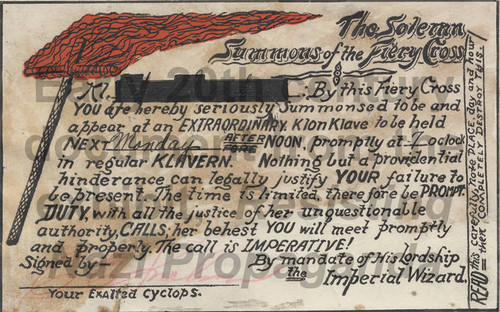 The Solemn
Summons of the Fiery Cross
Kl. : By this Fiery Cross
YOU are hereby seriously summonsed to be and
appear at an EXTRAORDINARY Klon Klave to be held
NEXT Monday AFTER NOON, promptly at 7 oclock
in regular KLAVERN. Nothing but a providential
hinderance can legally justify YOUR failure to
be present. The time is limited, therefore be PROMPT.
DUTY, with all the justice of her unquestionable
authority, CALLS; her behest YOU will meet promptly
and properly. The call is IMPERATIVE!
Signed by— By mandate of His Lordship
the Imperial Wizard.
Your Exalted Cyclops.
READ this carefully, note PLACE, day and hour
THEN COMPLETELY DESTROY THIS.
Early 20th
Nazi Propaganda